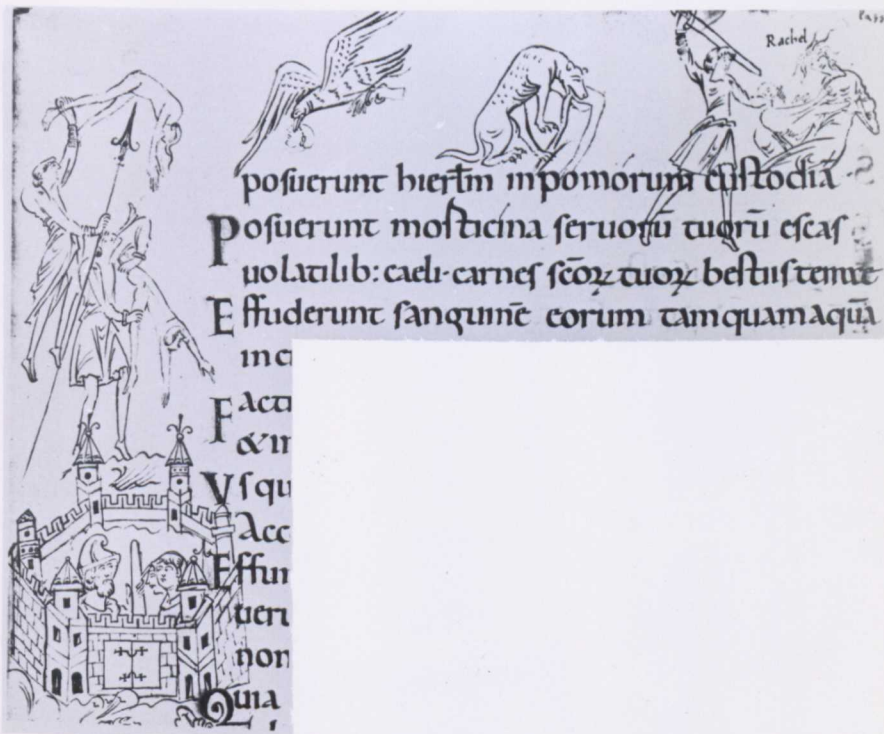 Rachel
posuerunt hierłm inpomórum custodiā
Posuerunt mosticina seruorū tuorū escas
uolatilib: caeli·carnes scōꝝ tuoꝝ bestiis terrae
Effuderunt sanguinē eorum tamquam aquā
in ci
Facti
&in
Vsqu
Acc
Effun
ueru
non
Quia